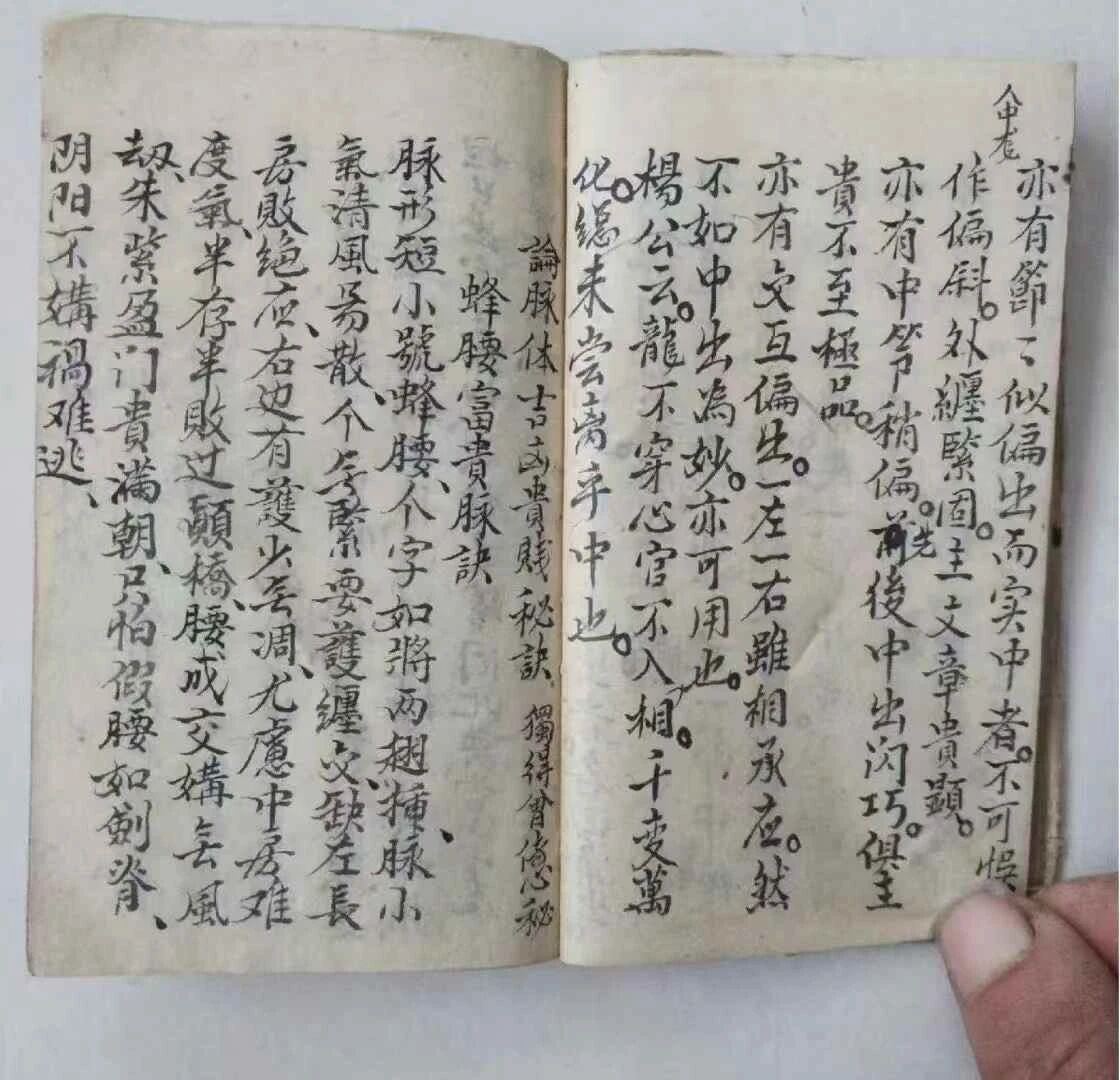 亦有節〻似偏出而实中者。不可悮
作偏斜。外纏緊固。主文章貴顯。
亦有中節稍偏。先後中出閃巧。俱主
貴不至極品。
亦有交互偏出。一左一右雖相承应。然
不如中出為妙。亦可用也。
楊公云。龍不穿心官不入相。千变萬
化。總未尝离乎中也。
論脉体吉凶貴賤秘訣、獨得曾僡心秘
蜂腰富貴脉訣
脉形短小號蜂腰、个字如将两翅揷、脉小
氣清風易散、个字緊要護纏交、缺左長
房敗绝应、右边有護少年凋、尤慮中房难
度氣、半存半敗过顛橋、腰成交媾無風
刼、朱紫盈门貴满朝、只怕假腰如劍脊、
阴阳不媾禍难逃、